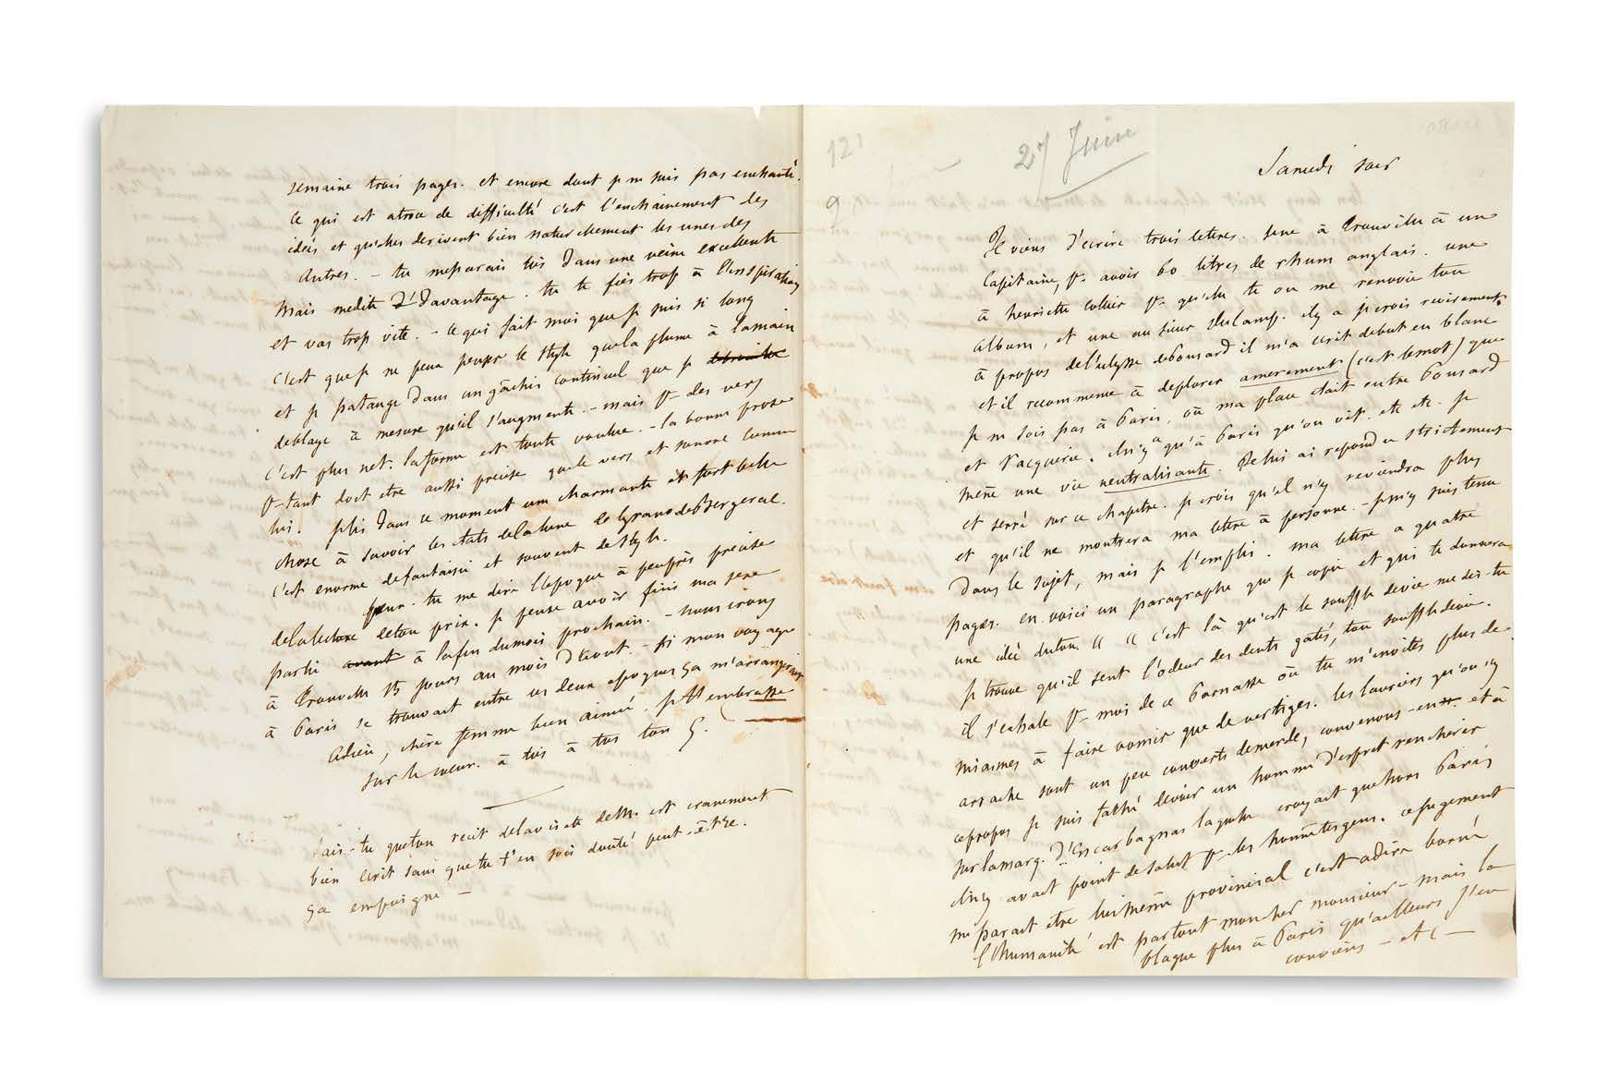 121
9
27 Juin
Samedi soir
Je viens d'écrire trois lettres. une à Trouville à un
Capitaine, pr avoir 60 litres de rhum anglais. une
à henriette Collier pr qu'elle te ou me renvoie ton
album, et une au sieur Ducamp. il y a je crois revirement
à propos de l'ulysse de Ponsard il m'a écrit debut en blanc
et il recommence à deplorer amerement (c'est le mot) que
je ne sois pas à Paris, où ma place était entre Ponsard
et Vacquerie. il n'y a qu'à Paris qu'on vit. etc etc. je
mène une vie neutralisante. Je lui ai repondu strictement
et serré sur ce chapitre. je crois qu'il n'y reviendra plus
et qu'il ne montrera ma lettre à personne. - je m'y suis tenu
dans le sujet, mais je l'emplis. ma lettre a quatre
pages. en voici un paragraphe que je copie et qui te donnera
une idée du ton. " " c'est là qu'est le souffle de vie me dis-tu
je trouve qu'il sent l'odeur des dents gatés, ton souffle de vie.
il s'exhale pr moi de ce Parnasse où tu m'invites plus de
miasmes à faire vomir que de vertiges. les lauriers qu'on s'y
arrache sont un peu couverts de merde, convenons-en. et à
ce propos je suis faché de voir un homme d'esprit rencherir
sur la marq. d'Escarbagnas laquelle croyait que hors Paris
il n'y avait point de salut pr les honnêtes gens. ce jugement
me parait être lui même provincial c'est a dire borné
l'humanité est partout mon cher monsieur - mais la
blague plus à Paris qu'ailleurs j'en
conviens - etc -
semaine trois pages. et encore dont je ne suis pas enchanté.
ce qui est atroce de difficulté c'est l'enchainement des
idées et qu'elles derivent bien naturellement les unes des
autres. - tu me parais toi dans une veine excellente
mais medite davantage. tu te fies trop à l'inspiration
et vas trop vite. - ce qui fait moi que je suis si long
c'est que je ne peux penser le style que la plume à la main
et je patauge dans un gâchis continuel que je
deblaye à mesure qu'il s'augmente. - mais pr des vers
c'est plus net. la forme est toute voulue. - la bonne prose
pr-tant doit etre aussi precise que le vers et sonore comme
lui. je lis dans ce moment une charmante et fort belle
chose à savoir les états de la lune de Cyrano de Bergerac.
c'est enorme de fantaisie et souvent de style.
tu me diras l'epoque à peu près precise
de la lecture de ton prix. je pense avoir fini ma 1ere
partie avant à la fin du mois prochain. - nous irons
à Trouville 15 jours au mois d'aout. - si mon voyage
à Paris se trouvait entre ces deux epoques ça m'arrangerait
adieu, chère femme bien aimée. je t'embrasse
sur le coeur. à toi à toi ton G.
sais-tu que ton recit de la visite de M. est cranement
bien écrit sans que tu t'en sois doutée peut-être.
ça empoigne -